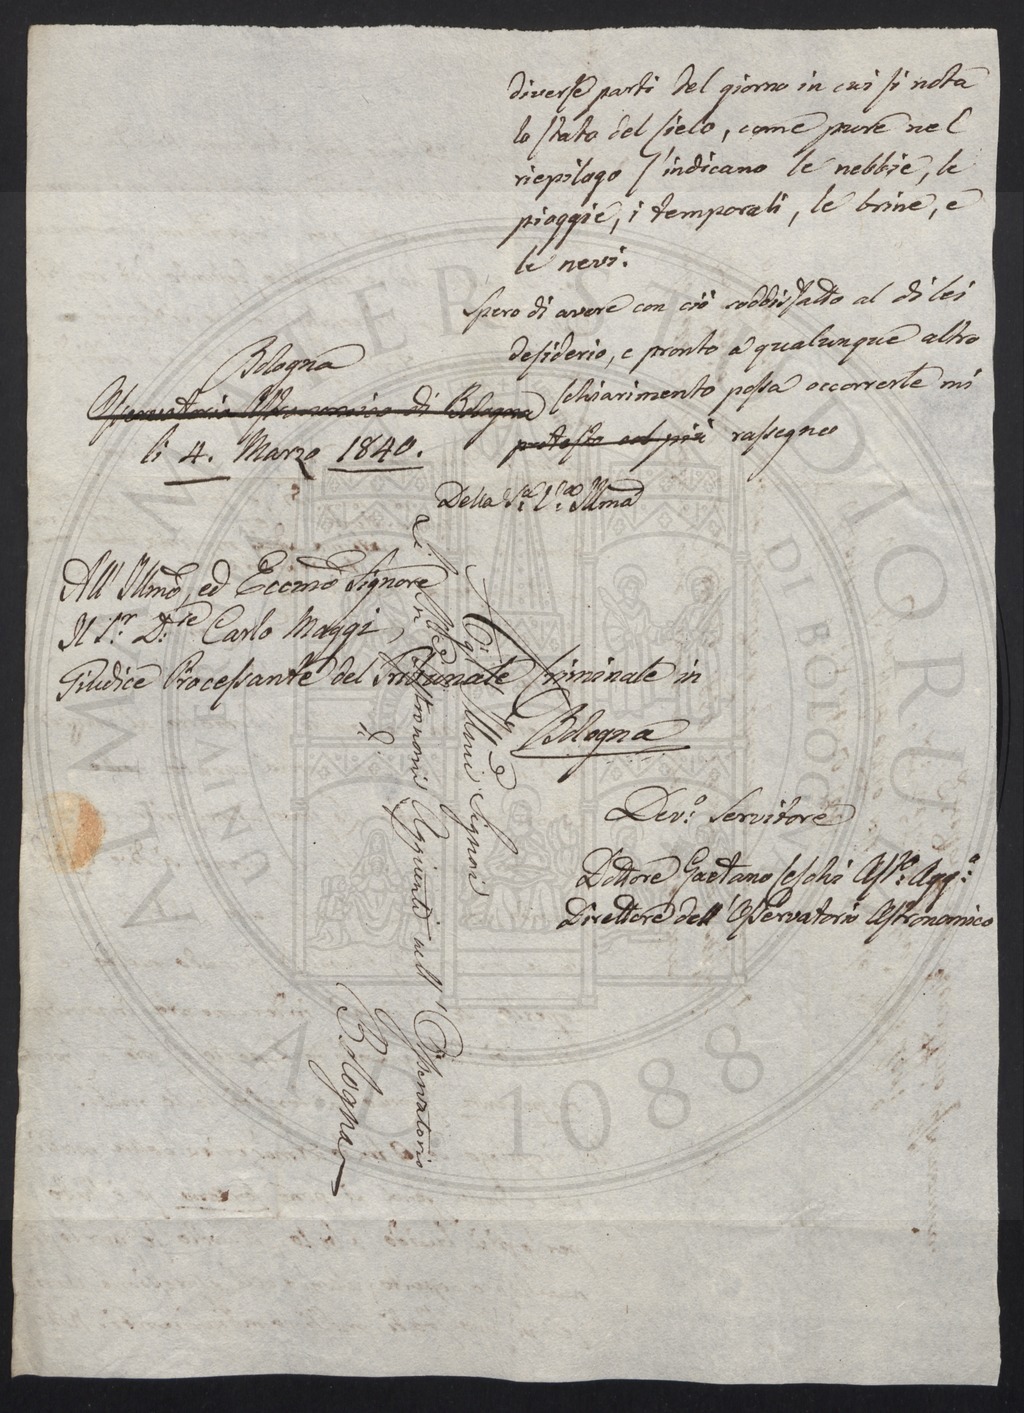 diverse parti del giorno in cui si nota
lo stato del Cielo, come pure nel
riepilogo s'indicano le nebbie, le
pioggie, i temporali, le brine, e
le nevi.
Spero di avere con ciò soddisfatto al di lei
desiderio, e pronto a qualunque altro
schiarimento possa occorrerle mi
protesto col più rassegno
Bologna
Osservatorio Astronomico di Bologna
li 4. Marzo 1840.
Della S.a V.a Illma
All' Illmo, ed Eccmo Signore
Il Sr. D.re Carlo Maggi,
Giudice Processante del Tribunale Criminale in
Bologna
Dev.o Servitore
Dottore Gaetano Ceschi Ast.o Agg.o
Direttore dell'Osservatorio Astronomico
Agl' Illmi Signori
Li Astronomi Aggiunti nell' Osservatorio
di
Bologna
ALMA MATER STUDIORUM
UNIVERSITÀ DI BOLOGNA
A.D. 1088